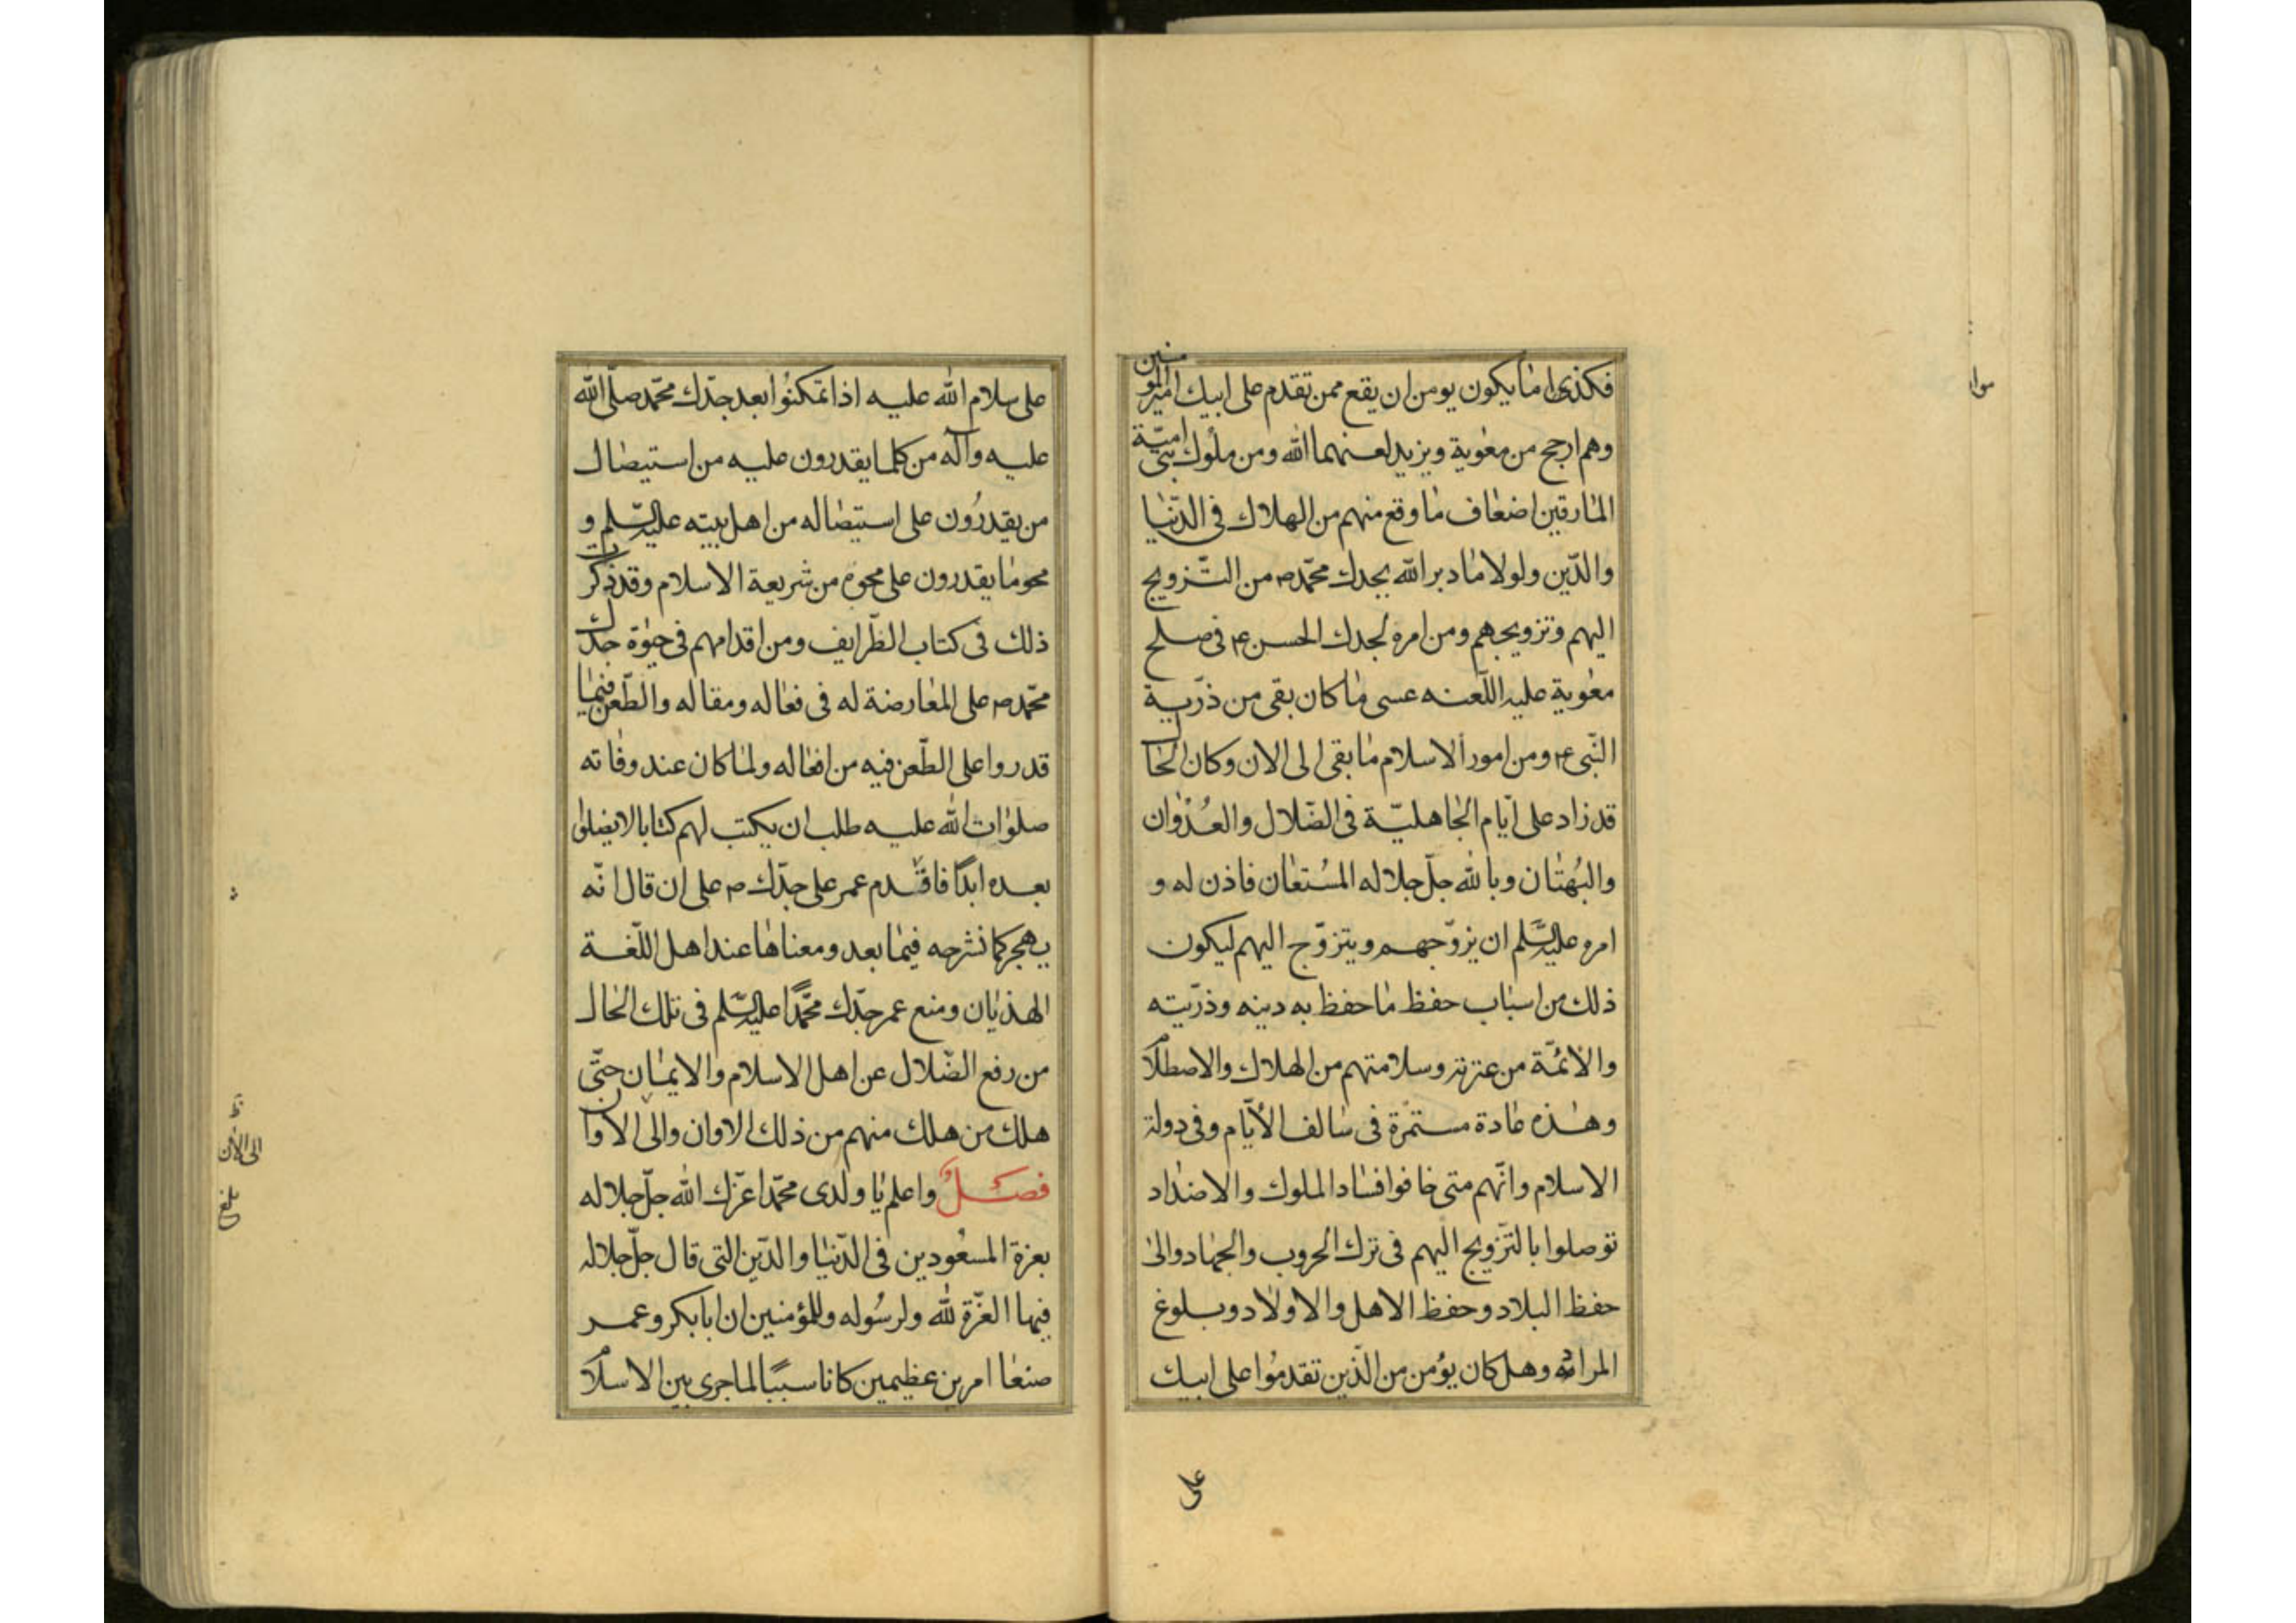 فكذى اما يكون يومن ان يقع ممن تقدم على ابيك اميرالمومنين
وهم ارجح من معوية ويزيد لعنهما الله ومن ملوك بنى اميّة
المارقين اضعاف ما وقع منهم من الهلاك فى الدّنيا
والدّين ولولا ما دبر الله بجدك محمّد ص من التّزويج
اليهم وتزويجهم ومن امره لجدك الحسن ع فى صلح
معوية عليه اللّعنه عسى ما كان بقى من ذرّية
النّبى ع ومن امور الاسلام ما بقى الى الان وكان الحال
قد زاد على ايّام الجاهليّة فى الضّلال والعُدْوان
والبُهتان وبالله جلّ جلاله المسُتعان فاذن له و
امره عليه السّلم ان يزوّجهم ويتزوّج اليهم ليكون
ذلك من اسباب حفظ ما حفظ به دينه وذرّيته
والأئمّة من عترته وسلامتهم من الهلاك والاصطلام
وهذه عادة مستمّرة فى سالف الأيّام وفى دولة
الاسلام وانّهم متى خافوا فساد الملوك والاضداد
توصلوا بالتّزويج اليهم فى ترك الحروب والجهاد والى
حفظ البلاد وحفظ الاهل والاولاد وبلوغ
المراد وهل كان يؤمن من الّذين تقدموُا على ابيك
على
على سلام الله عليه اذا تمكنوُا بعد جدّك محمّد صلّى الله
عليه وآله من كلما يقدرون عليه من استيصال
من يقدرُون على استيصاله من اهل بيته عليه السّلم و
محو ما يقدرون على محوه من شريعة الاسلام وقد ذكرت
ذلك فى كتاب الظّرايف ومن اقدامهم فى حيوٰة جدّك
محّمد ص على المعارضة له فى فعاله ومقاله والطّعن فيما
قدروا على الطّعن فيه من افعاله ولما كان عند وفاته
صلوات الله عليه طلب ان يكتب لهم كتابا لا يضلوا
بعده ابدًا فاقْدم عمر على جدّك ص على ان قال انّه
يهجر كما نشرحه فيما بعد ومعناها عند اهل اللّغة
الهذيان ومنع عمر جدّك محمّدًا عليه السّلم فى تلك الحال
من رفع الضّلال عن اهل الاسلام والايمان حتّى
هلك من هلك منهم من ذلك الاوان والى الاوان
فصلٌ واعلم يا ولدى محمّد اعزّك الله جلّ جلاله
بعزة المسعُودين فى الدّنيا والدّين التى قال جلّ جلاله
فيها العّزة لله ولرسُوله وللمؤمنين ان ابا بكر وعمر
صنعا امرين عظيمين كانا سببًا لما جرى بين الاسلام
الى الأن
بلغ